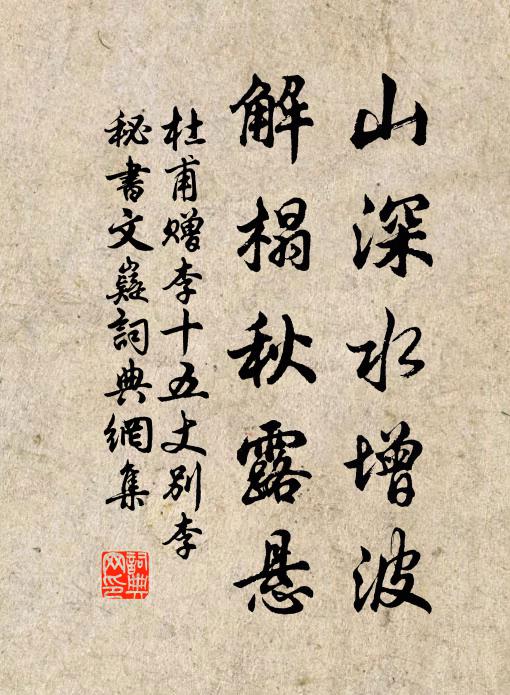 山深水增波
解榻秋露悬
杜甫赠李十五丈别李
秘書文嶷詞典網集
詞典網印